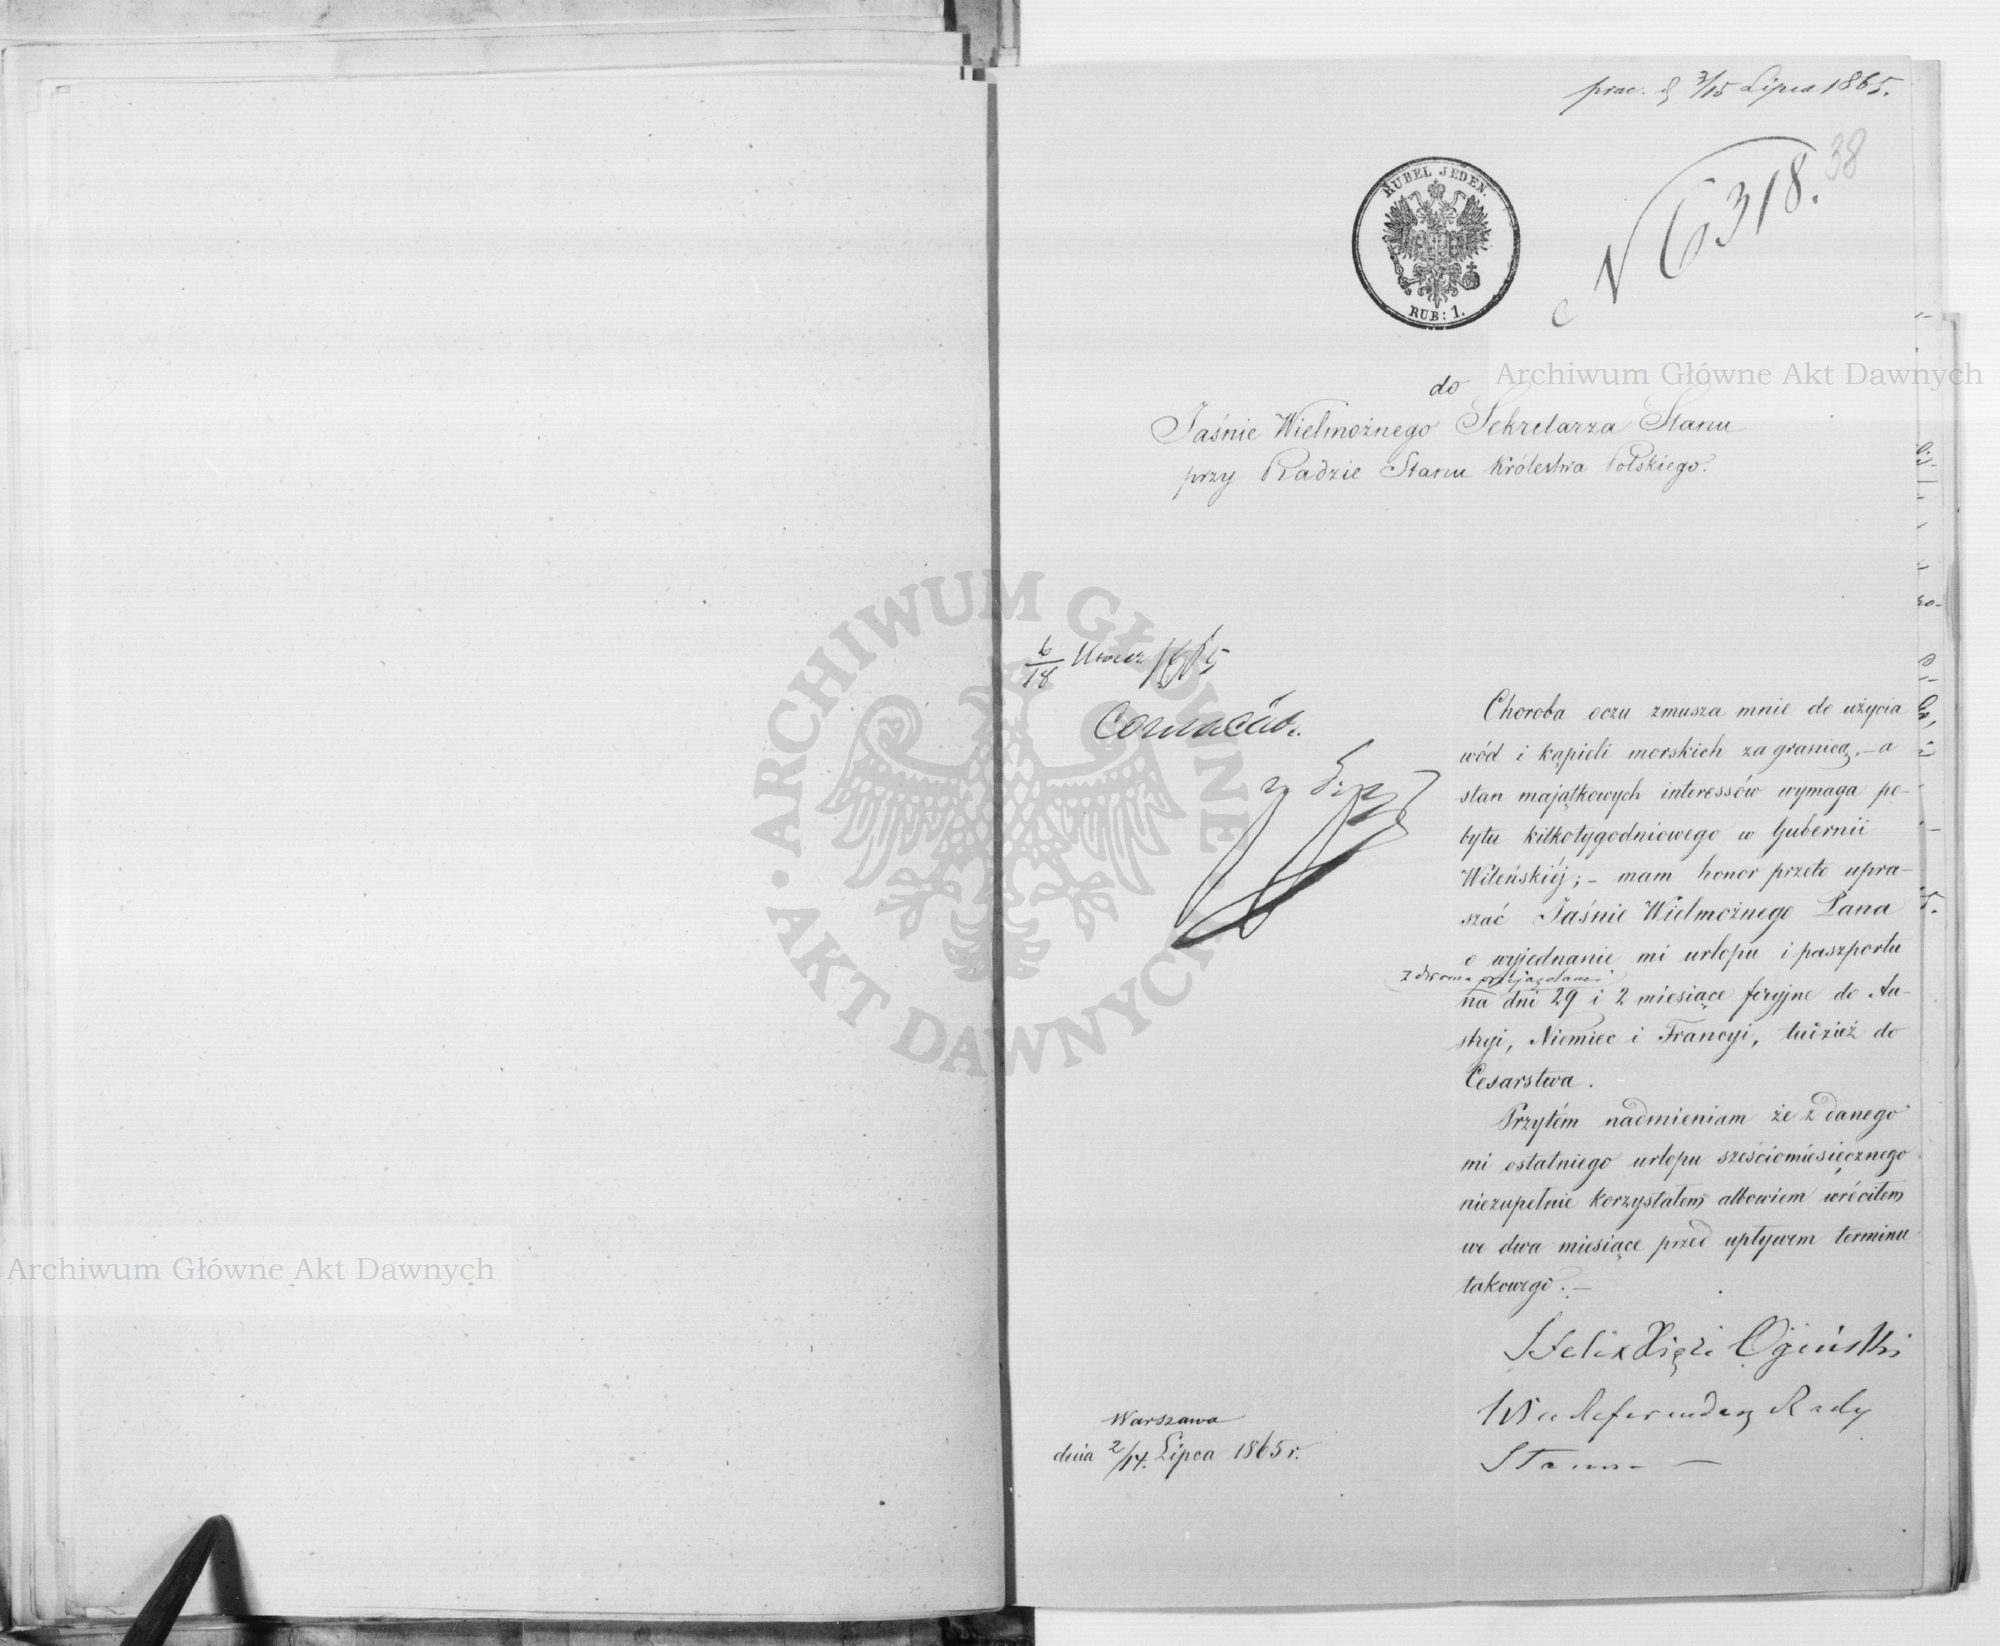 3/15 Lipca 1865.
38
N 6318.
RUBEL JEDEN.
RUB: 1.
Archiwum Główne Akt Dawnych
do
Jaśnie Wielmożnego Sekretarza Stanu
przy Radzie Stanu Królestwa Polskiego.
6/18 1865
ARCHIWUM GŁÓWNE AKT DAWNYCH
Choroba oczu zmusza mnie do użycia
wód i kąpieli morskich zagranicą, – a
stan majątkowych interessów wymaga po-
bytu kilkotygodniowego w Gubernii
Wileńskiéj; – mam honor przeto upra-
szać Jaśnie Wielmożnego Pana
o wyjednanie mi urlopu i paszportu
z dwoma
na dni 29 i 2 miesiące feryjne do Au-
stryi, Niemiec i Francyi, tudzież do
Cesarstwa.
Przytém nadmieniam że z danego
mi ostatniego urlopu sześciomiesięcznego
niezupełnie korzystałem, albowiem wróciłem
we dwa miesiące przed upływem terminu
takowego. –
Archiwum Główne Akt Dawnych
Felix Xiąże Ogiński
Referendarz Rady
Stanu –
Warszawa
dnia 2/14. Lipca 1865 r.